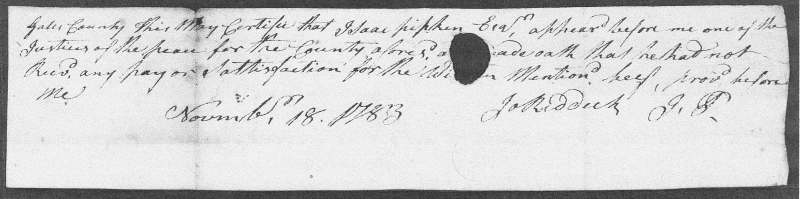 Gates County This May Certifie that Isaac pipken Esqr. appeard before me one of the
Justices of the peace for the County afores.d, a ade oath that he had not
Recd. any pay or Sattisfaction for the Mention'd beef, prov.d before
Me
Novembr. 18. 1783 Jo Riddick J. P.